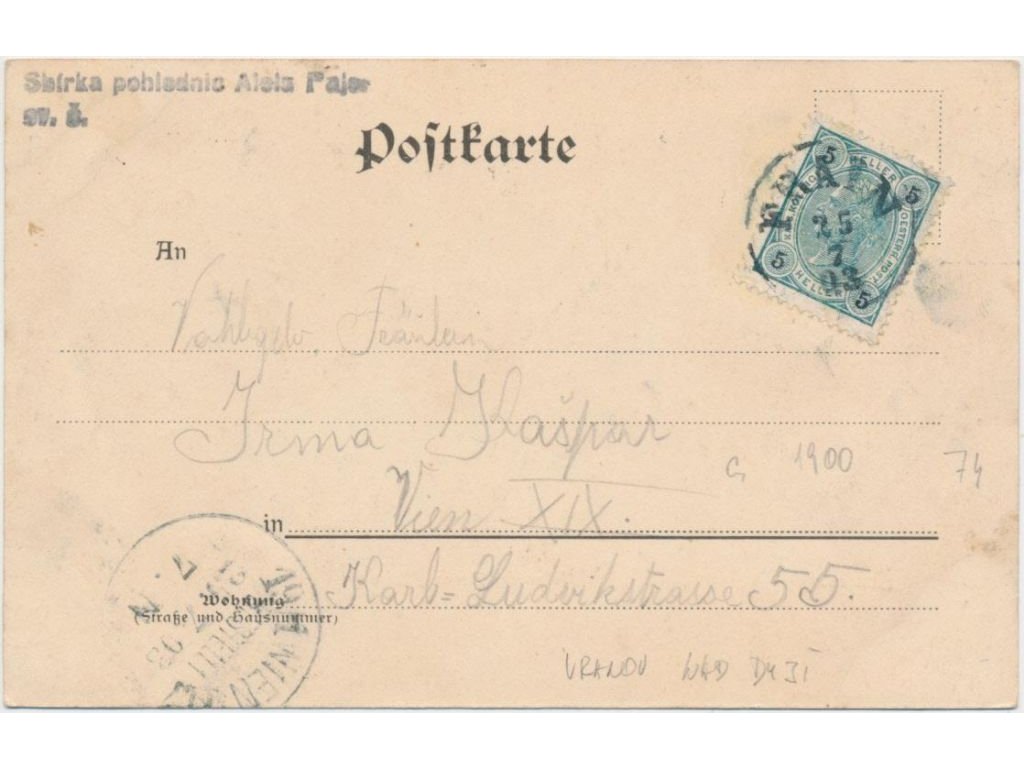 Sbírka pohlednic Alois Pajer
ev. č.
Postkarte
5 HELLER 5
KAIS. KÖNIGL. OESTERR. POST
5 HELLER 5
FRAIN
25
7
03
An
Fräulein
Irma Kašpar
c 1900
74
in Wien XIX.
Wohnung
(Straße und Hausnummer)
Karl=Ludvikstrasse 55.
WIEN
VRANOV NAD DYJÍ